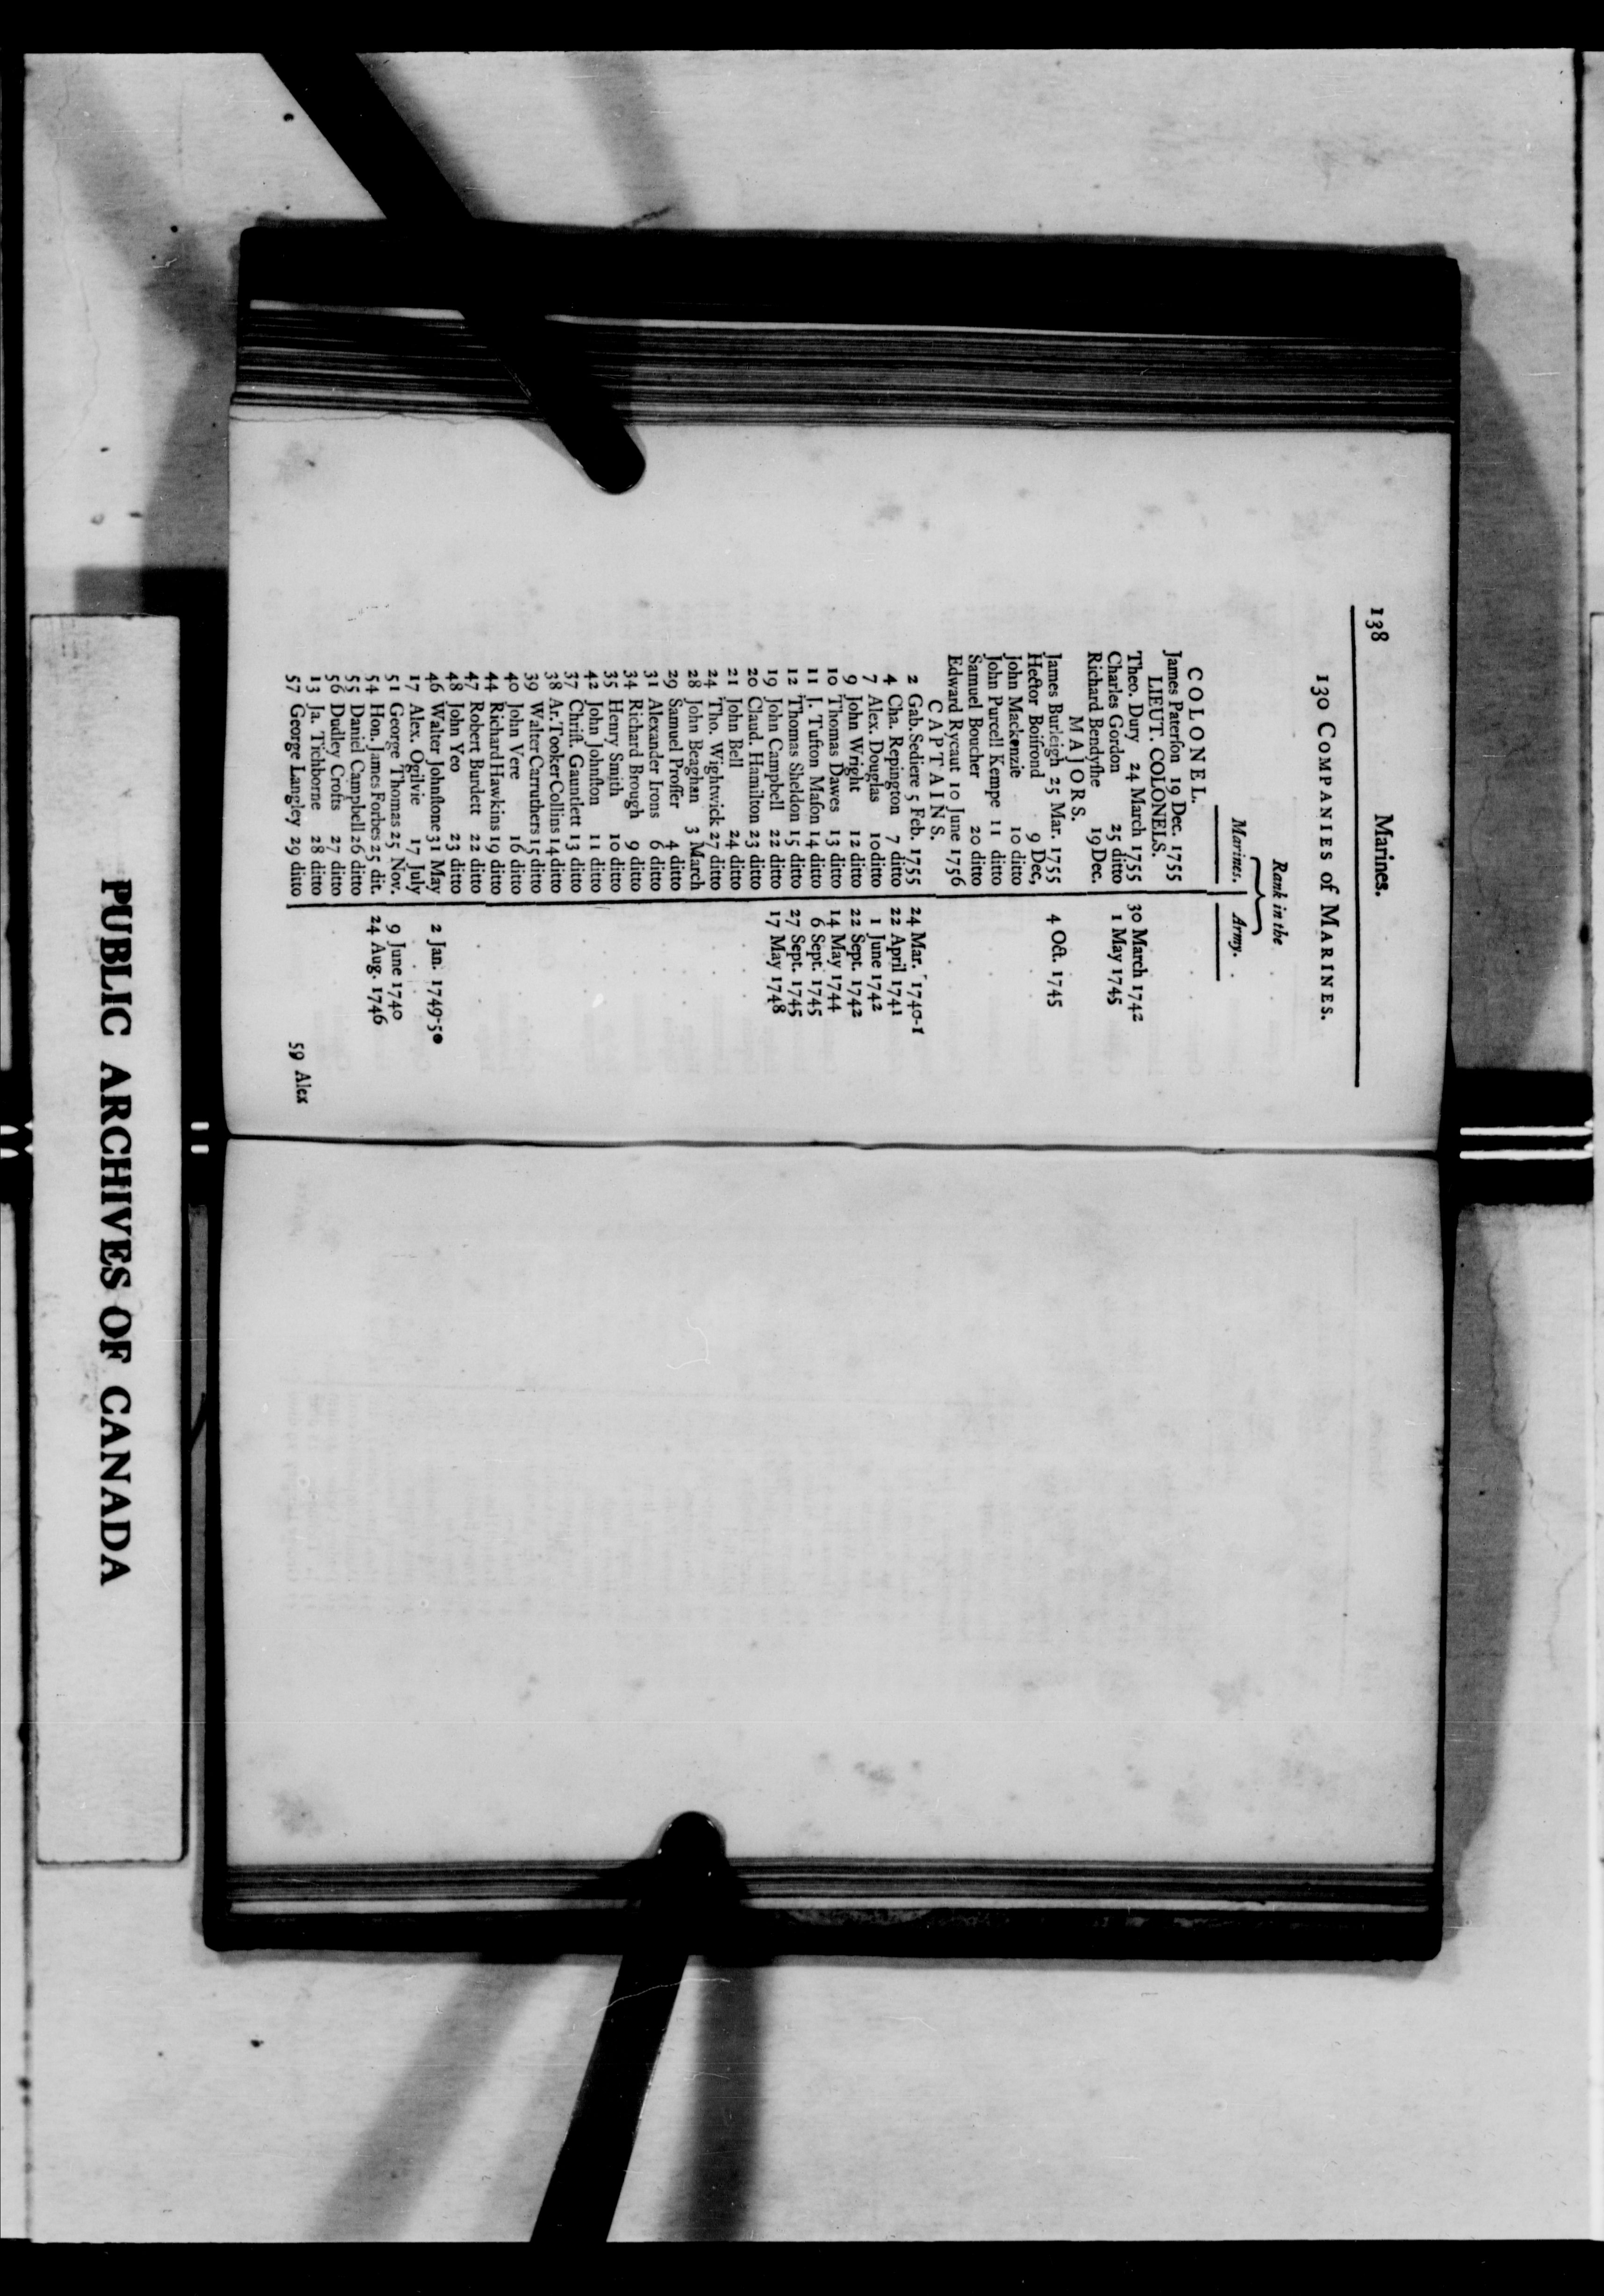 138 Marines.
130 COMPANIES of MARINES.
Rank in the
Marines. Army.
COLONEL.
James Paterſon 19 Dec. 1755
LIEUT. COLONELS.
Theo. Dury 24 March 1755 30 March 1742
Charles Gordon 25 ditto 1 May 1745
Richard Bendyſhe 19 Dec.
MAJORS.
James Burleigh 25 Mar. 1755 4 Oct. 1745
Hector Boiſrond 9 Dec,
John Mackenzie 10 ditto
John Purcell Kempe 11 ditto
Samuel Boucher 20 ditto
Edward Rycaut 10 June 1756
CAPTAINS.
2 Gab. Sediere 5 Feb. 1755 24 Mar. 1740-1
4 Cha. Repington 7 ditto 22 April 1741
7 Alex. Douglas 10 ditto 1 June 1742
9 John Wright 12 ditto 22 Sept. 1742
10 Thomas Dawes 13 ditto 14 May 1744
11 J. Tufton Maſon 14 ditto 6 Sept. 1745
12 Thomas Sheldon 15 ditto 27 Sept. 1745
19 John Campbell 22 ditto 17 May 1748
20 Claud. Hamilton 23 ditto
21 John Bell 24 ditto
24 Tho. Wightwick 27 ditto
28 John Beaghan 3 March
29 Samuel Proſſer 4 ditto
31 Alexander Irons 6 ditto
34 Richard Brough 9 ditto
35 Henry Smith 10 ditto
42 John Johnſton 11 ditto
37 Chriſt. Gauntlett 13 ditto
38 Ar. Tooker Collins 14 ditto
39 Walter Carruthers 15 ditto
40 John Vere 16 ditto
44 Richard Hawkins 19 ditto
47 Robert Burdett 22 ditto
48 John Yeo 23 ditto
46 Walter Johnſtone 31 May 2 Jan. 1749-50
17 Alex. Ogilvie 17 July
51 George Thomas 25 Nov. 9 June 1740
54 Hon. James Forbes 25 dit. 24 Aug. 1746
55 Daniel Campbell 26 ditto
56 Dudley Crofts 27 ditto
13 Ja. Tichborne 28 ditto
57 George Langley 29 ditto
59 Alex
PUBLIC ARCHIVES OF CANADA